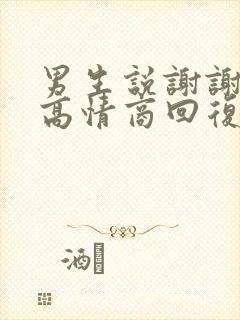 男生説謝謝
高情商回復
酒